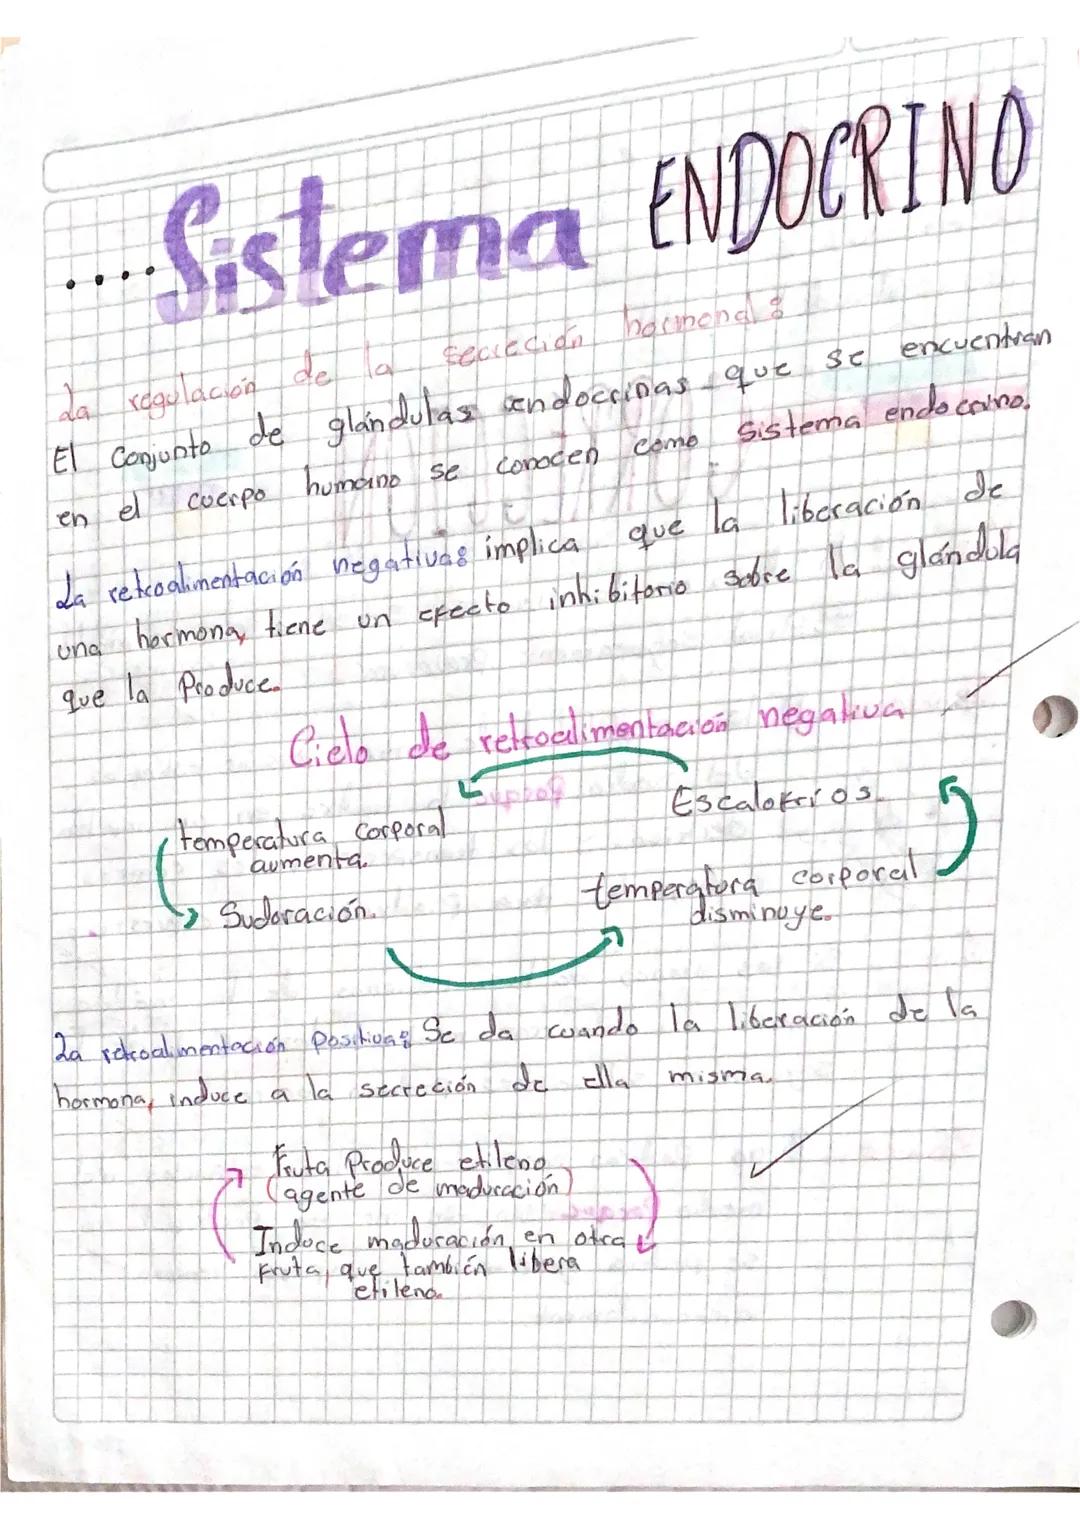 ....Sistema ENDOCRINO
La regulación de la secreción hormonal:
El conjunto de glándulas endocrinas que se encuentran
en el cuerpo humano se conocen como sistema endocrino.
La retroalimentación negativa: implica que la liberación de
una hormona, tiene un efecto inhibitorio sobre la glándula
que la Produce.
Ciclo de retroalimentación negativa
Escalofríos.
temperatura corporal
aumenta.
Sudoración.
temperatura corporal
disminuye.
La retroalimentación Positiva: Se da cuando la liberación de la
hormona, induce a la secreción de ella misma.
Fruta Produce etileno
(agente de maduración)
Induce maduración en otra
fruta, que también libera
etileno.